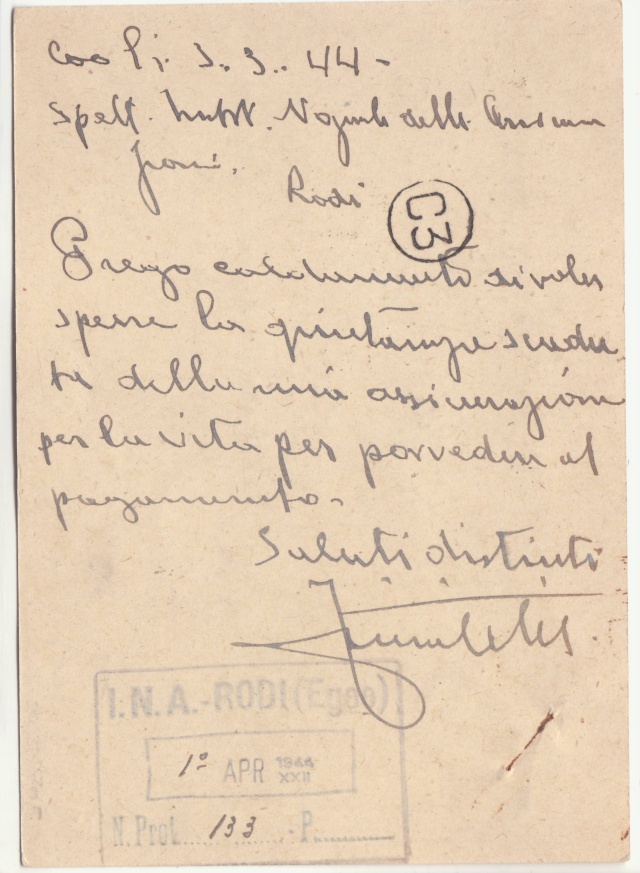 3. 3. 44 -
Spett. Istit. Nazionale delle Assicura
zioni.
Rodi
C3
Prego caldamente di voler
la quietanza scadu
ta della mia assicurazione
per la vita per provveder al
pagamento.
Saluti distinti
I.N.A.-RODI (Egeo)
1º APR 1944
XXII
N. Prot. 133 - P.